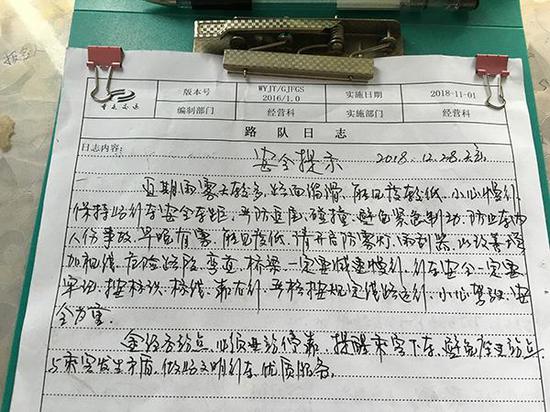 重庆交运
版本号 WYJT/GJFGS 2016/1.0 实施日期 2018-11-01
编制部门 经营科 实施部门 经营科
路队日志
日志内容:
安全提示 2018.12.28
近期雨雾天较多,路面湿滑,能见度较低,小心慢行,
保持路行车安全车距,严防追尾、碰撞,避免紧急制动,防止车内
人伤事故,早晚有雾,能见度低,请开启防雾灯,雨刮器,以改善增
加视线,在险路段、弯道、桥梁一定要减速慢行,行车安全一定要
牢记,按标识、标线、靠右行,严格按规定线路运行,小心驾驶,安
全为要。
站点,必须进站停靠,提醒乘客下车,避免在站点
与乘客发生矛盾,做好文明行车,优质服务。